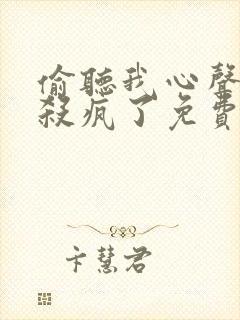 偷聽我心聲
殺瘋了免費
卞慧君